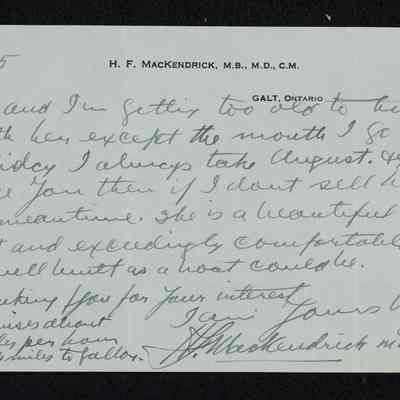 5
H. F. MacKendrick, M.B., M.D., C.M.
Galt, Ontario
and I'm getting too old to
her except the month I go
I always take August.
you then if I dont sell
meantime. She is a beautiful
and exceedingly comfortable
well built as a boat could be.
you for your interest
I am Yours
about
per hour
miles to gallon.
H F MacKendrick M